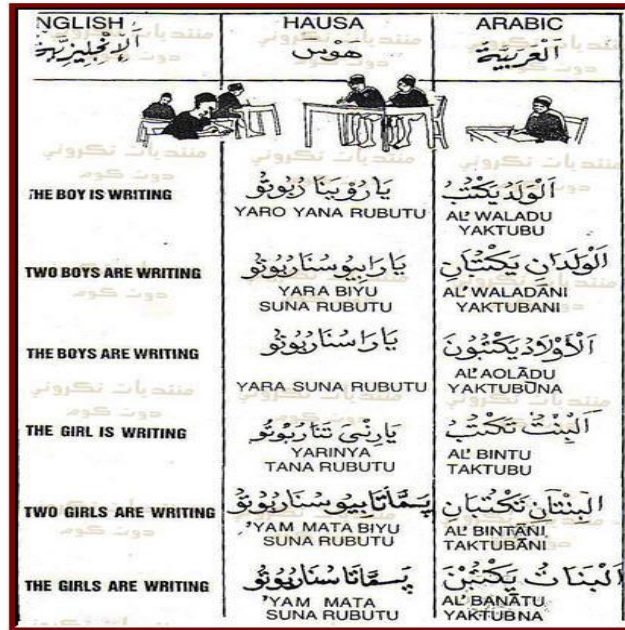 NGLISH HAUSA ARABIC
اَلْإِنْجِلِيزِيَّة هَوْسَ اَلْعَرَبِيَّة
منتديات تكروني
دوت كوم
THE BOY IS WRITING
يَارُو يَنَا رُبُوتُو
YARO YANA RUBUTU
اَلْوَلَدُ يَكْتُبُ
AL' WALADU
YAKTUBU
TWO BOYS ARE WRITING
يَارَا بِيُو سُنَا رُبُوتُو
YARA BIYU
SUNA RUBUTU
اَلْوَلَدَانِ يَكْتُبَانِ
AL' WALADĀNI
YAKTUBANI
THE BOYS ARE WRITING
يَارَا سُنَا رُبُوتُو
YARA SUNA RUBUTU
اَلْأَوْلَادُ يَكْتُبُونَ
AL' AOLĀDU
YAKTUBŪNA
THE GIRL IS WRITING
يَارِنْيَ تَنَا رُبُوتُو
YARINYA
TANA RUBUTU
اَلْبِنْتُ تَكْتُبُ
AL' BINTU
TAKTUBU
TWO GIRLS ARE WRITING
بِيُو سُنَا رُبُوتُو
'YAM MATA BIYU
SUNA RUBUTU
اَلْبِنْتَانِ تَكْتُبَانِ
AL' BINTĀNI
TAKTUBĀNI
THE GIRLS ARE WRITING
سُنَا رُبُوتُو
'YAM MATA
SUNA RUBUTU
اَلْبَنَاتُ يَكْتُبْنَ
AL' BANĀTU
YAKTUBNA